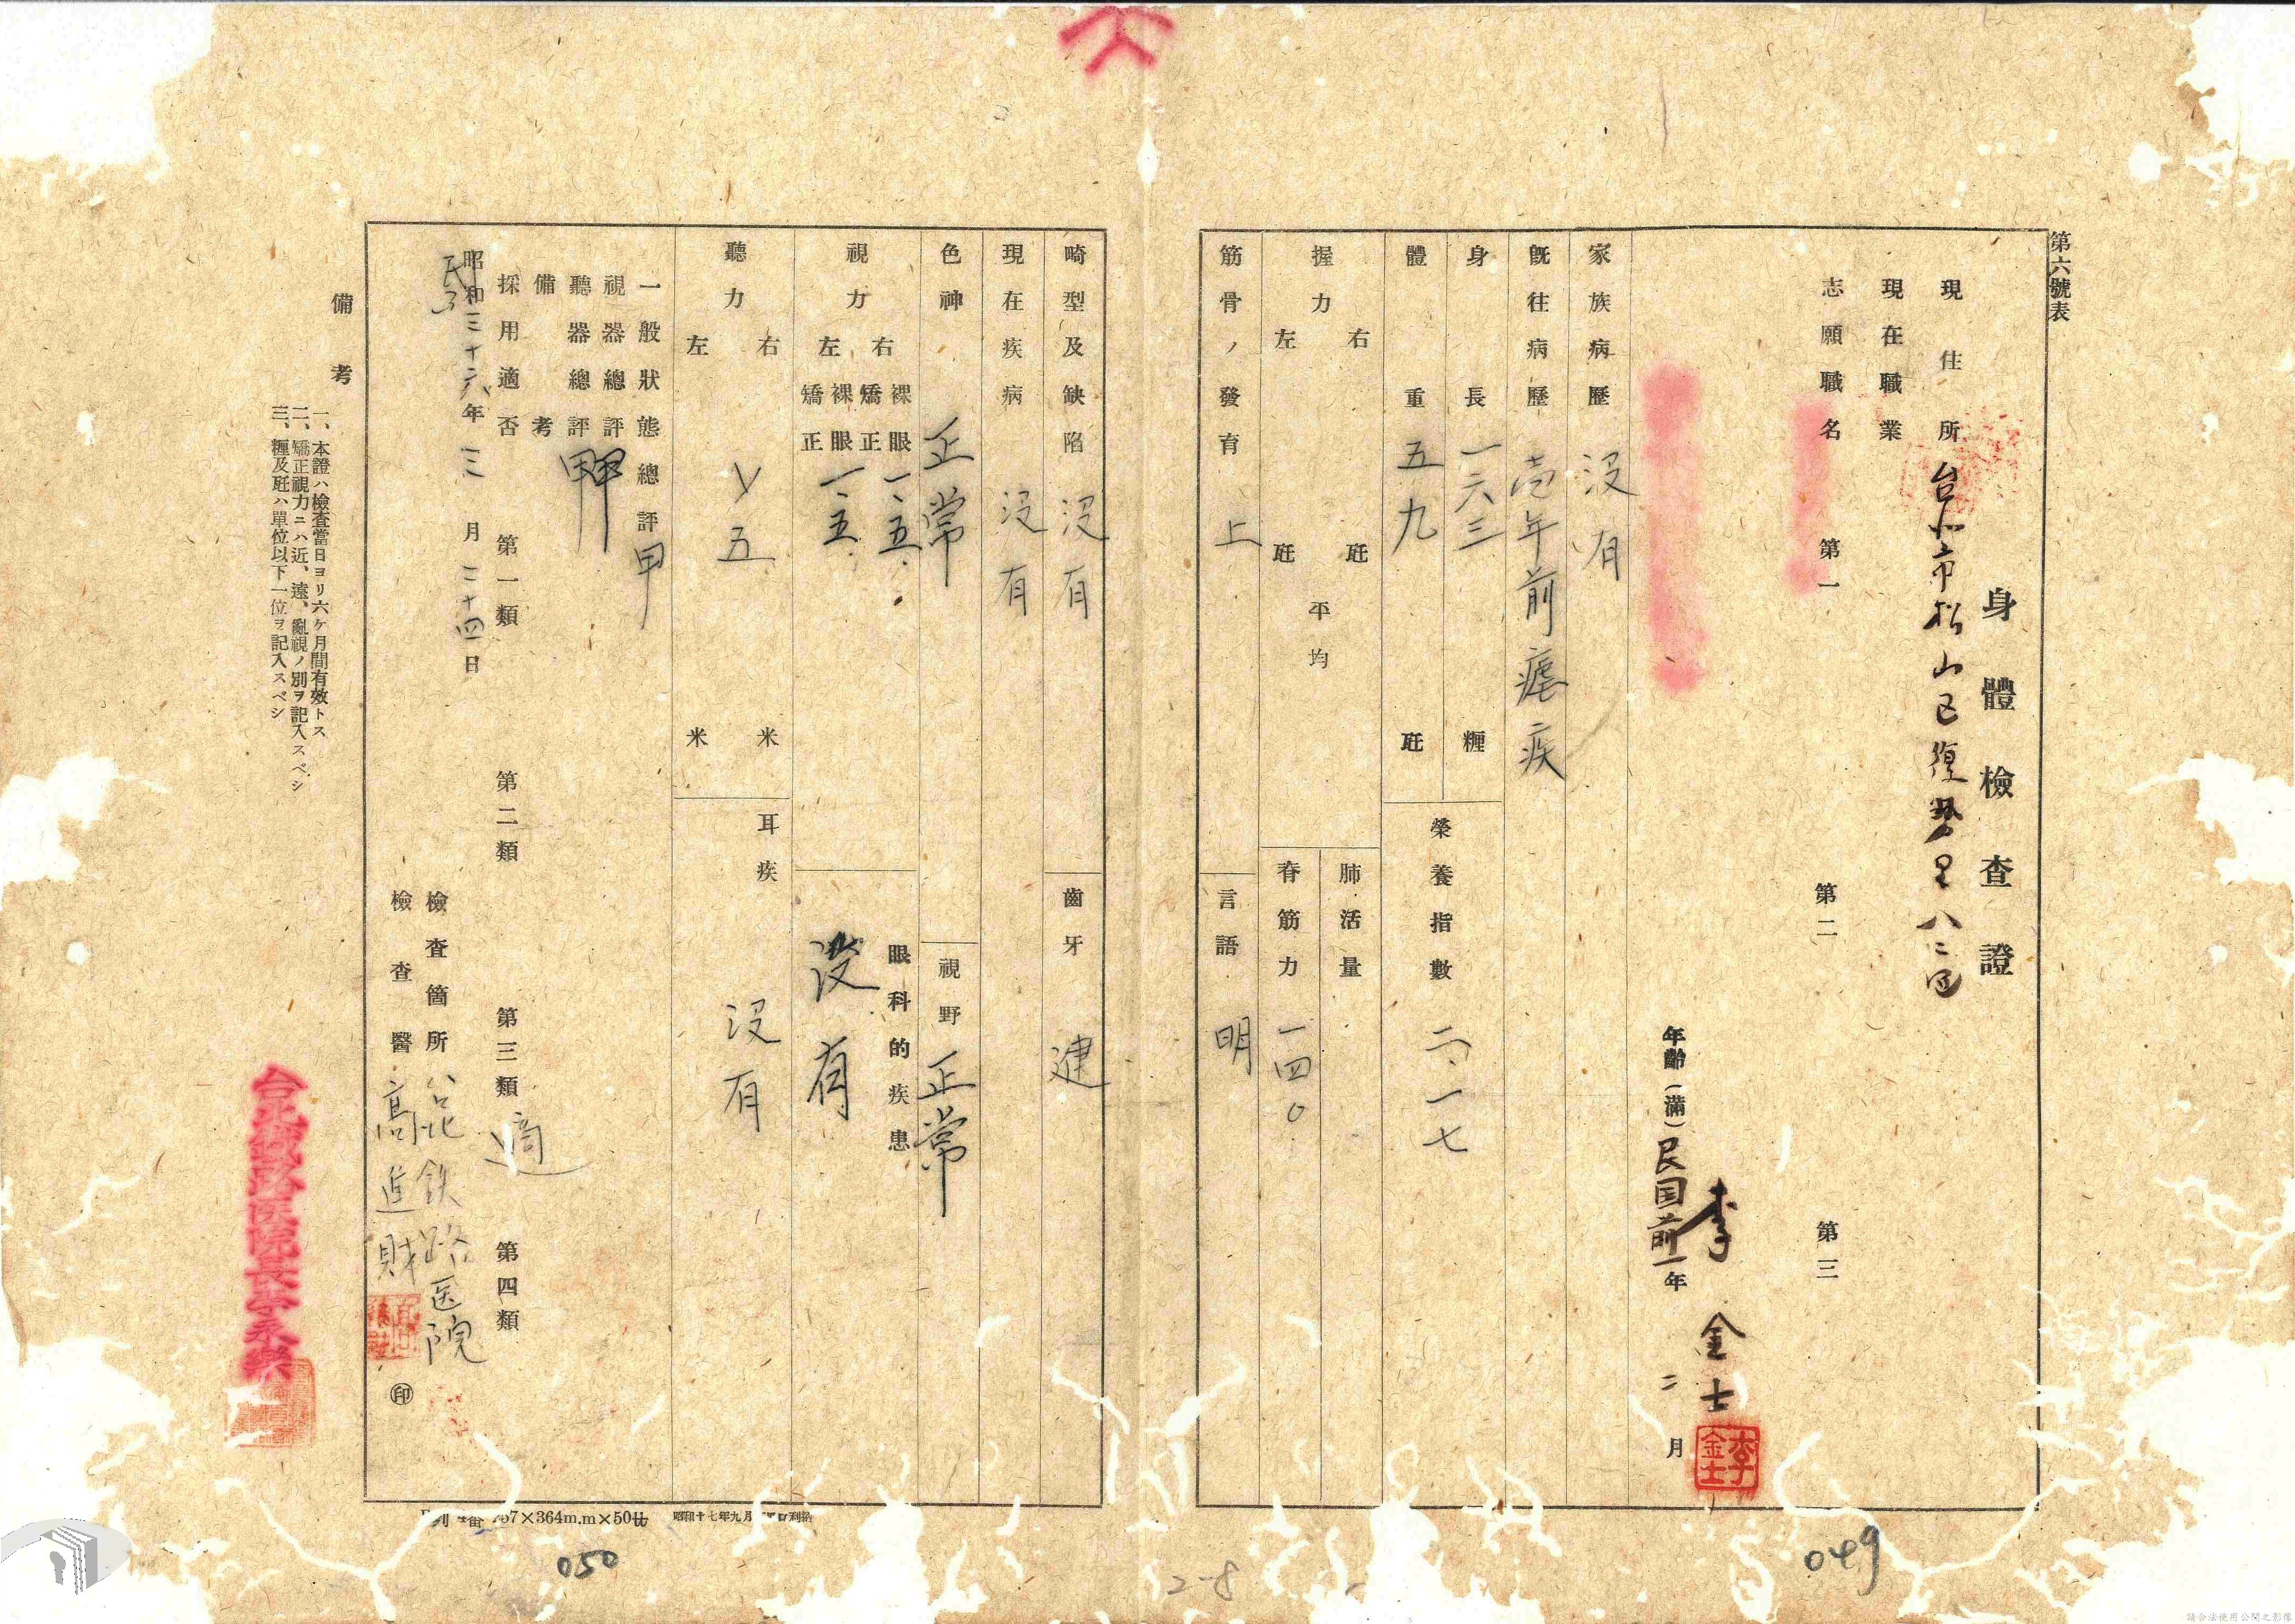 第六號表
身體檢查證
現住所 台北市松山区復勢里八二四
現在職業
志願職名 第一 第二 第三
李金士
李金士
年齡(滿)民国前一年二月
家族病歷 没有
既往病歷 壱年前瘧疾
身長 一六三 糎
體重 五九 瓩
榮養指數 二、一七
握力 右 瓩 左 瓩 平均
肺活量
脊筋力 一四〇
筋骨ノ發育 上
言語 明
畸型及缺陷 没有
齒牙 健
現在疾病 没有
色神 正常
視野 正常
視力 右 裸眼 一、五 矯正
左 裸眼 一、五 矯正
眼科的疾患 没有
聽力 右 米
左 米
五
耳疾 没有
一般狀態總評 甲
視器總評 甲
聽器總評 甲
備考
採用適否 第一類 第二類 第三類 第四類
適
昭和 民 三十六年 三月二十四日
檢查箇所 台北鉄路医院
檢查醫 高進財 ㊞
台北鐵路医院長
備考
一、本證ハ檢查當日ヨリ六ケ月間有效トス
二、矯正視力ニハ近、遠、亂視ノ別ヲ記入スベシ
三、糎及瓩ハ單位以下一位ヲ記入スベシ
57×364m.m×50
昭和十七年九月
049
2-8
050
請合法使用公開之影像